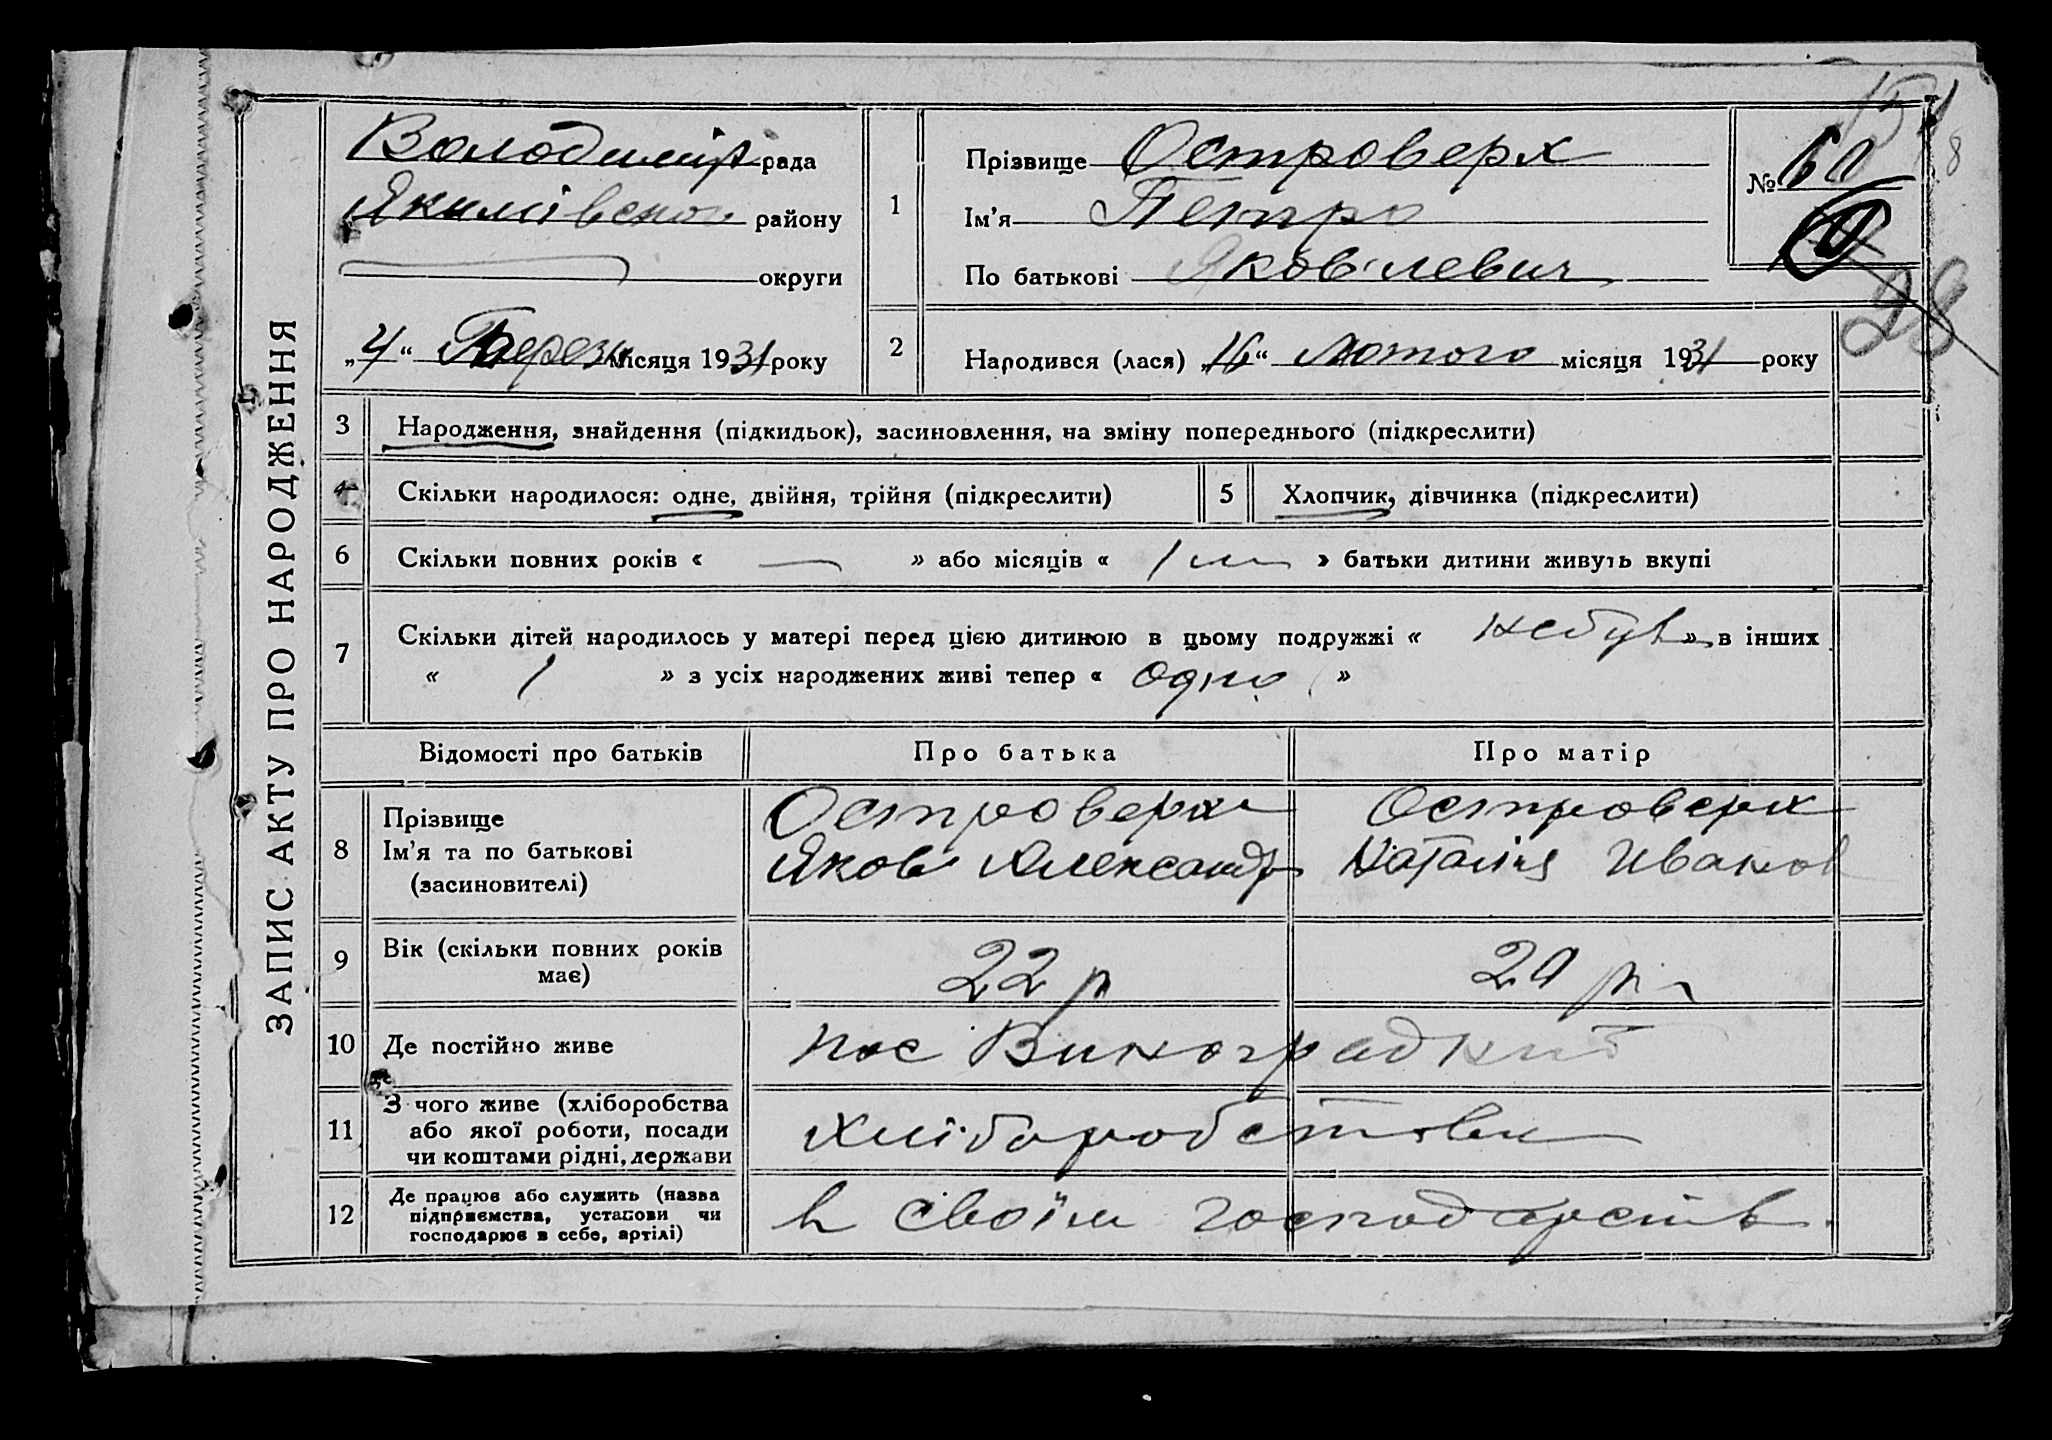 ЗАПИС АКТУ ПРО НАРОДЖЕННЯ
Володимір рада
Якимівског району
округи
„4“ Березн місяця 1931 року
1
Прізвище Островерх
Ім’я Петро
По батькові Яковілевич
№ 60
28
2
Народився (лася) „16“ Лютого місяця 1931 року
3 Народження, знайдення (підкидьок), засиновлення, на зміну попереднього (підкреслити)
4 Скільки народилося: одне, двійня, трійня (підкреслити) 5 Хлопчик, дівчинка (підкреслити)
6 Скільки повних років « — » або місяців « 1 м » батьки дитини живуть вкупі
7 Скільки дітей народилось у матері перед цією дитиною в цьому подружжі « небув » в інших
« 1 » з усіх народжених живі тепер « одно »
Відомості про батьків Про батька Про матір
8 Прізвище
Ім’я та по батькові
(засиновителі)
Островерхи
Яков Александр
Островерх
Наталія Иванов
9 Вік (скільки повних років
має)
22 р 20 р
10 Де постійно живе пос Виноградний
11 З чого живе (хліборобства
або якої роботи, посади
чи коштами рідні, держави
Хліборобством
12 Де працює або служить (назва
підприємства, установи чи
господарює в себе, артілі)
в своїм господарств